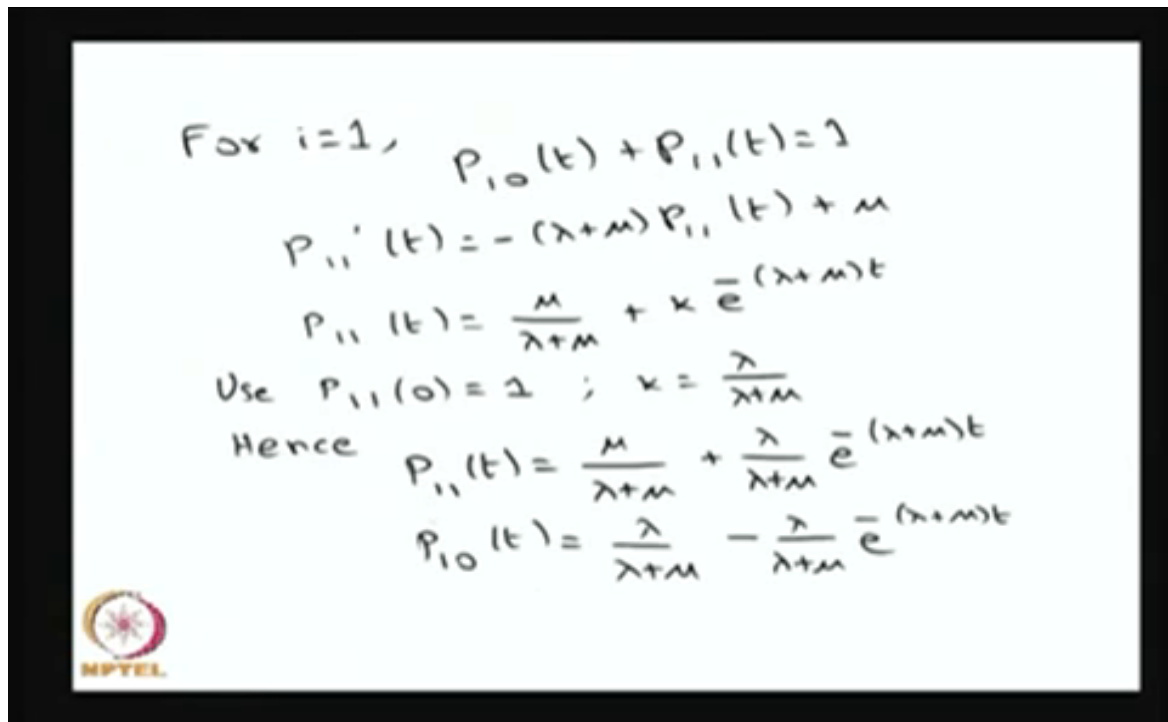 For i=1, P₁₀(t) + P₁₁(t)=1
P₁₁'(t) = -(λ+μ) P₁₁(t) + μ
P₁₁(t) = μ/(λ+μ) + k e^-(λ+μ)t
Use P₁₁(0) = 1 ; k = λ/(λ+μ)
Hence P₁₁(t) = μ/(λ+μ) + λ/(λ+μ) e^-(λ+μ)t
P₁₀(t) = λ/(λ+μ) - λ/(λ+μ) e^-(λ+μ)t
NPTEL